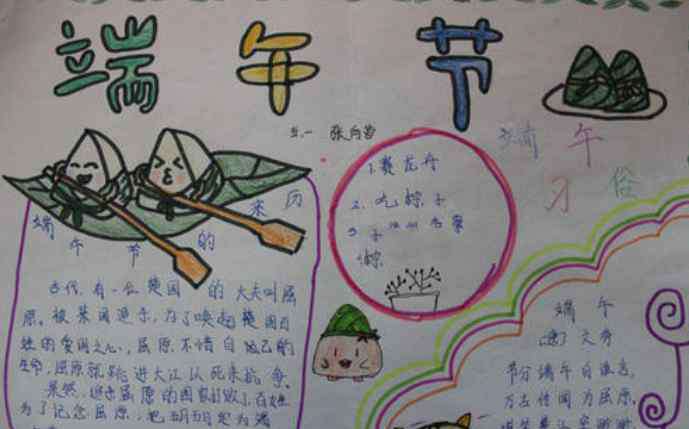 端午节
五.一 张向营
端午习俗
1.赛龙舟
2.吃粽子
端午节的来历
古代,有一么楚国的大夫叫屈
原。被某国追杀,为了唤起楚国百
姓的爱国之心,屈原不惜自己的
生命,屈原就跳进大江以死来抗争。
果然,追杀屈原的国家打败了,百姓
为了记念屈原,把五月五日定为端
端午
(唐)文秀
节分端午自谁言,
万古传闻为屈原。